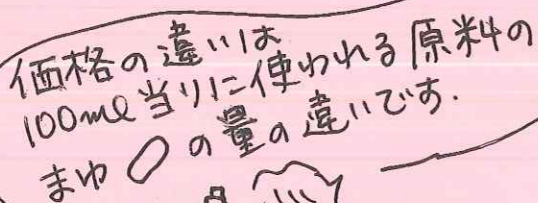 価格の違いは
100ml当りに使われる原料の
まゆ の量の違いです.